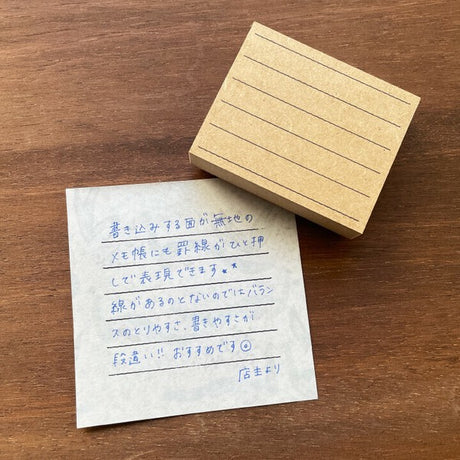 書き込みする面が無地の
メモ帳にも罫線がひと押
しで表現できます★★
線があるのとないのではバラン
スのとりやすさ、書きやすさが
段違い!! おすすめです☺
店主より